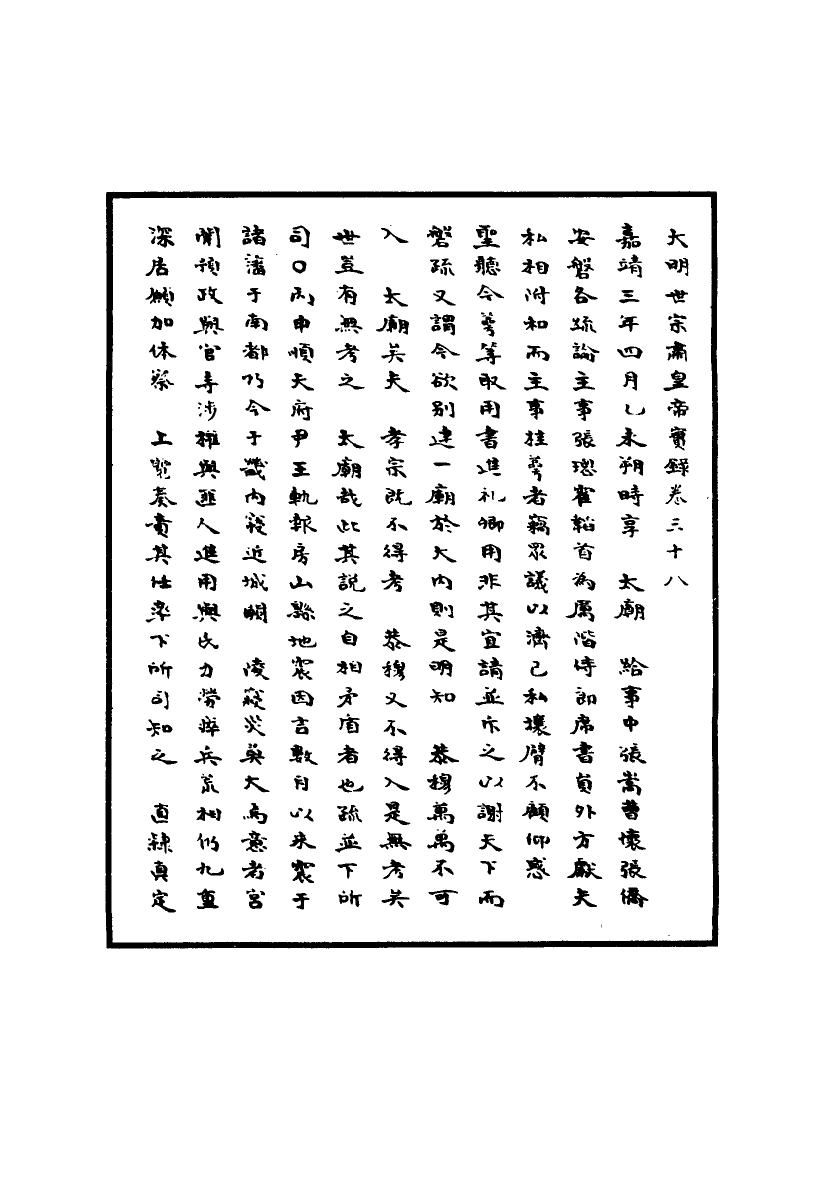 大明世宗肅皇帝實錄卷三十八
嘉靖三年四月乙未朔時享　太廟　給事中張嵩曹懷張僑
安磐各疏論主事張璁霍韜首為厲階侍郎席書員外方獻夫
私相附和而主事桂萼者竊眾議以濟己私攘臂不顧仰惑
聖聽今萼等取用書進礼卿用非其宜請並斥之以謝天下而
磐疏又謂今欲別建一廟於大內則是明知　恭穆萬萬不可
入　太廟矣夫　孝宗既不得考　恭穆又不得入是無考矣
世豈有無考之　太廟哉此其說之自相矛盾者也疏並下所
司〇丙申順天府尹王軏報房山縣地震因言數月以來震于
諸藩于南都乃今于畿內窾近城嗣　陵窾災莫大焉意者宮
闈預政與官寺涉權與匪人進用與民力勞瘁兵荒相仍九重
深居願加休察　上覽奏責其仕率下所司知之　直隸真定